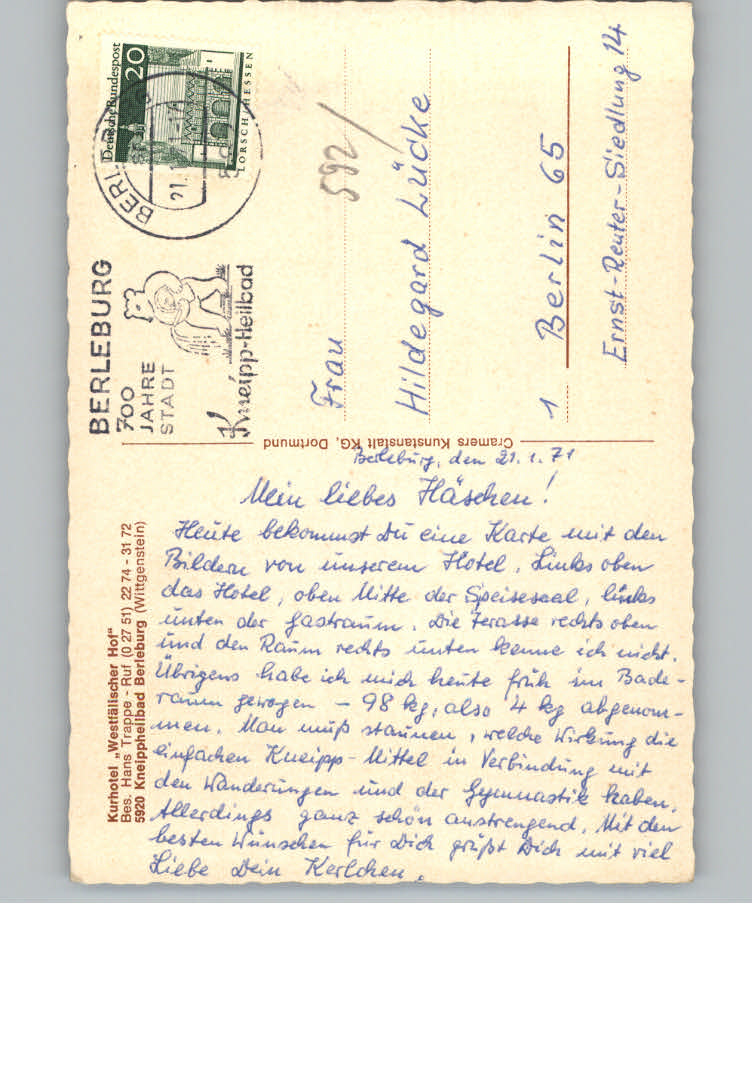 Kurhotel „Westfälischer Hof"
Bes. Hans Trappe - Ruf (0 27 51) 22 74 - 31 72
5920 Kneippheilbad Berleburg (Wittgenstein)
Berleburg, den 21.1.71
Mein liebes Häschen!
Heute bekommst Du eine Karte mit den
Bildern von unserem Hotel. Links oben
das Hotel, oben Mitte der Speisesaal, links
unten der Gastraum. Die Terasse rechts oben
und den Raum rechts unten kenne ich nicht.
Übrigens habe ich mich heute früh im Bade-
raum gewogen - 98 kg, also 4 kg abgenom-
men. Man muß staunen, welche Wirkung die
einfachen Kneipp-Mittel in Verbindung mit
den Wanderungen und der Gymnastik haben.
Allerdings ganz schön anstrengend. Mit den
besten Wünschen für Dich grüßt Dich mit viel
Liebe Dein Kerlchen.
Cramers Kunstanstalt KG, Dortmund
BERLEBURG
700
JAHRE
STADT
Kneipp-Heilbad
Deutsche Bundespost
20
LORSCH/HESSEN
592/
Frau
Hildegard Lücke
1 Berlin 65
Ernst-Reuter-Siedlung 14